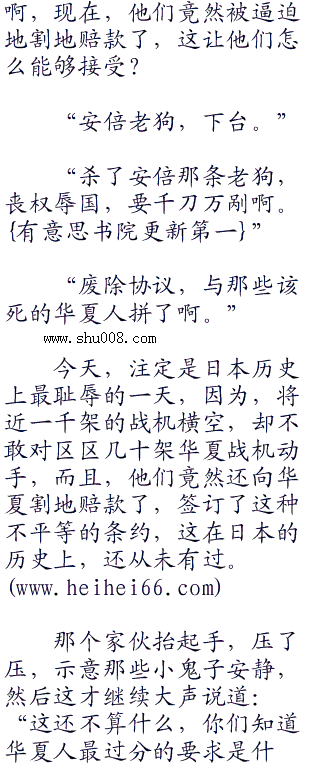 啊，现在，他们竟然被逼迫
地割地赔款了，这让他们怎
么能够接受？
“安倍老狗，下台。”
“杀了安倍那条老狗，
丧权辱国，要千刀万剐啊。
{有意思书院更新第一}”
“废除协议，与那些该
死的华夏人拼了啊。”
www.shu008.com
今天，注定是日本历史
上最耻辱的一天，因为，将
近一千架的战机横空，却不
敢对区区几十架华夏战机动
手，而且，他们竟然还向华
夏割地赔款了，签订了这种
不平等的条约，这在日本的
历史上，还从未有过。
(www.heihei66.com)
那个家伙抬起手，压了
压，示意那些小鬼子安静，
然后这才继续大声说道：
“这还不算什么，你们知道
华夏人最过分的要求是什